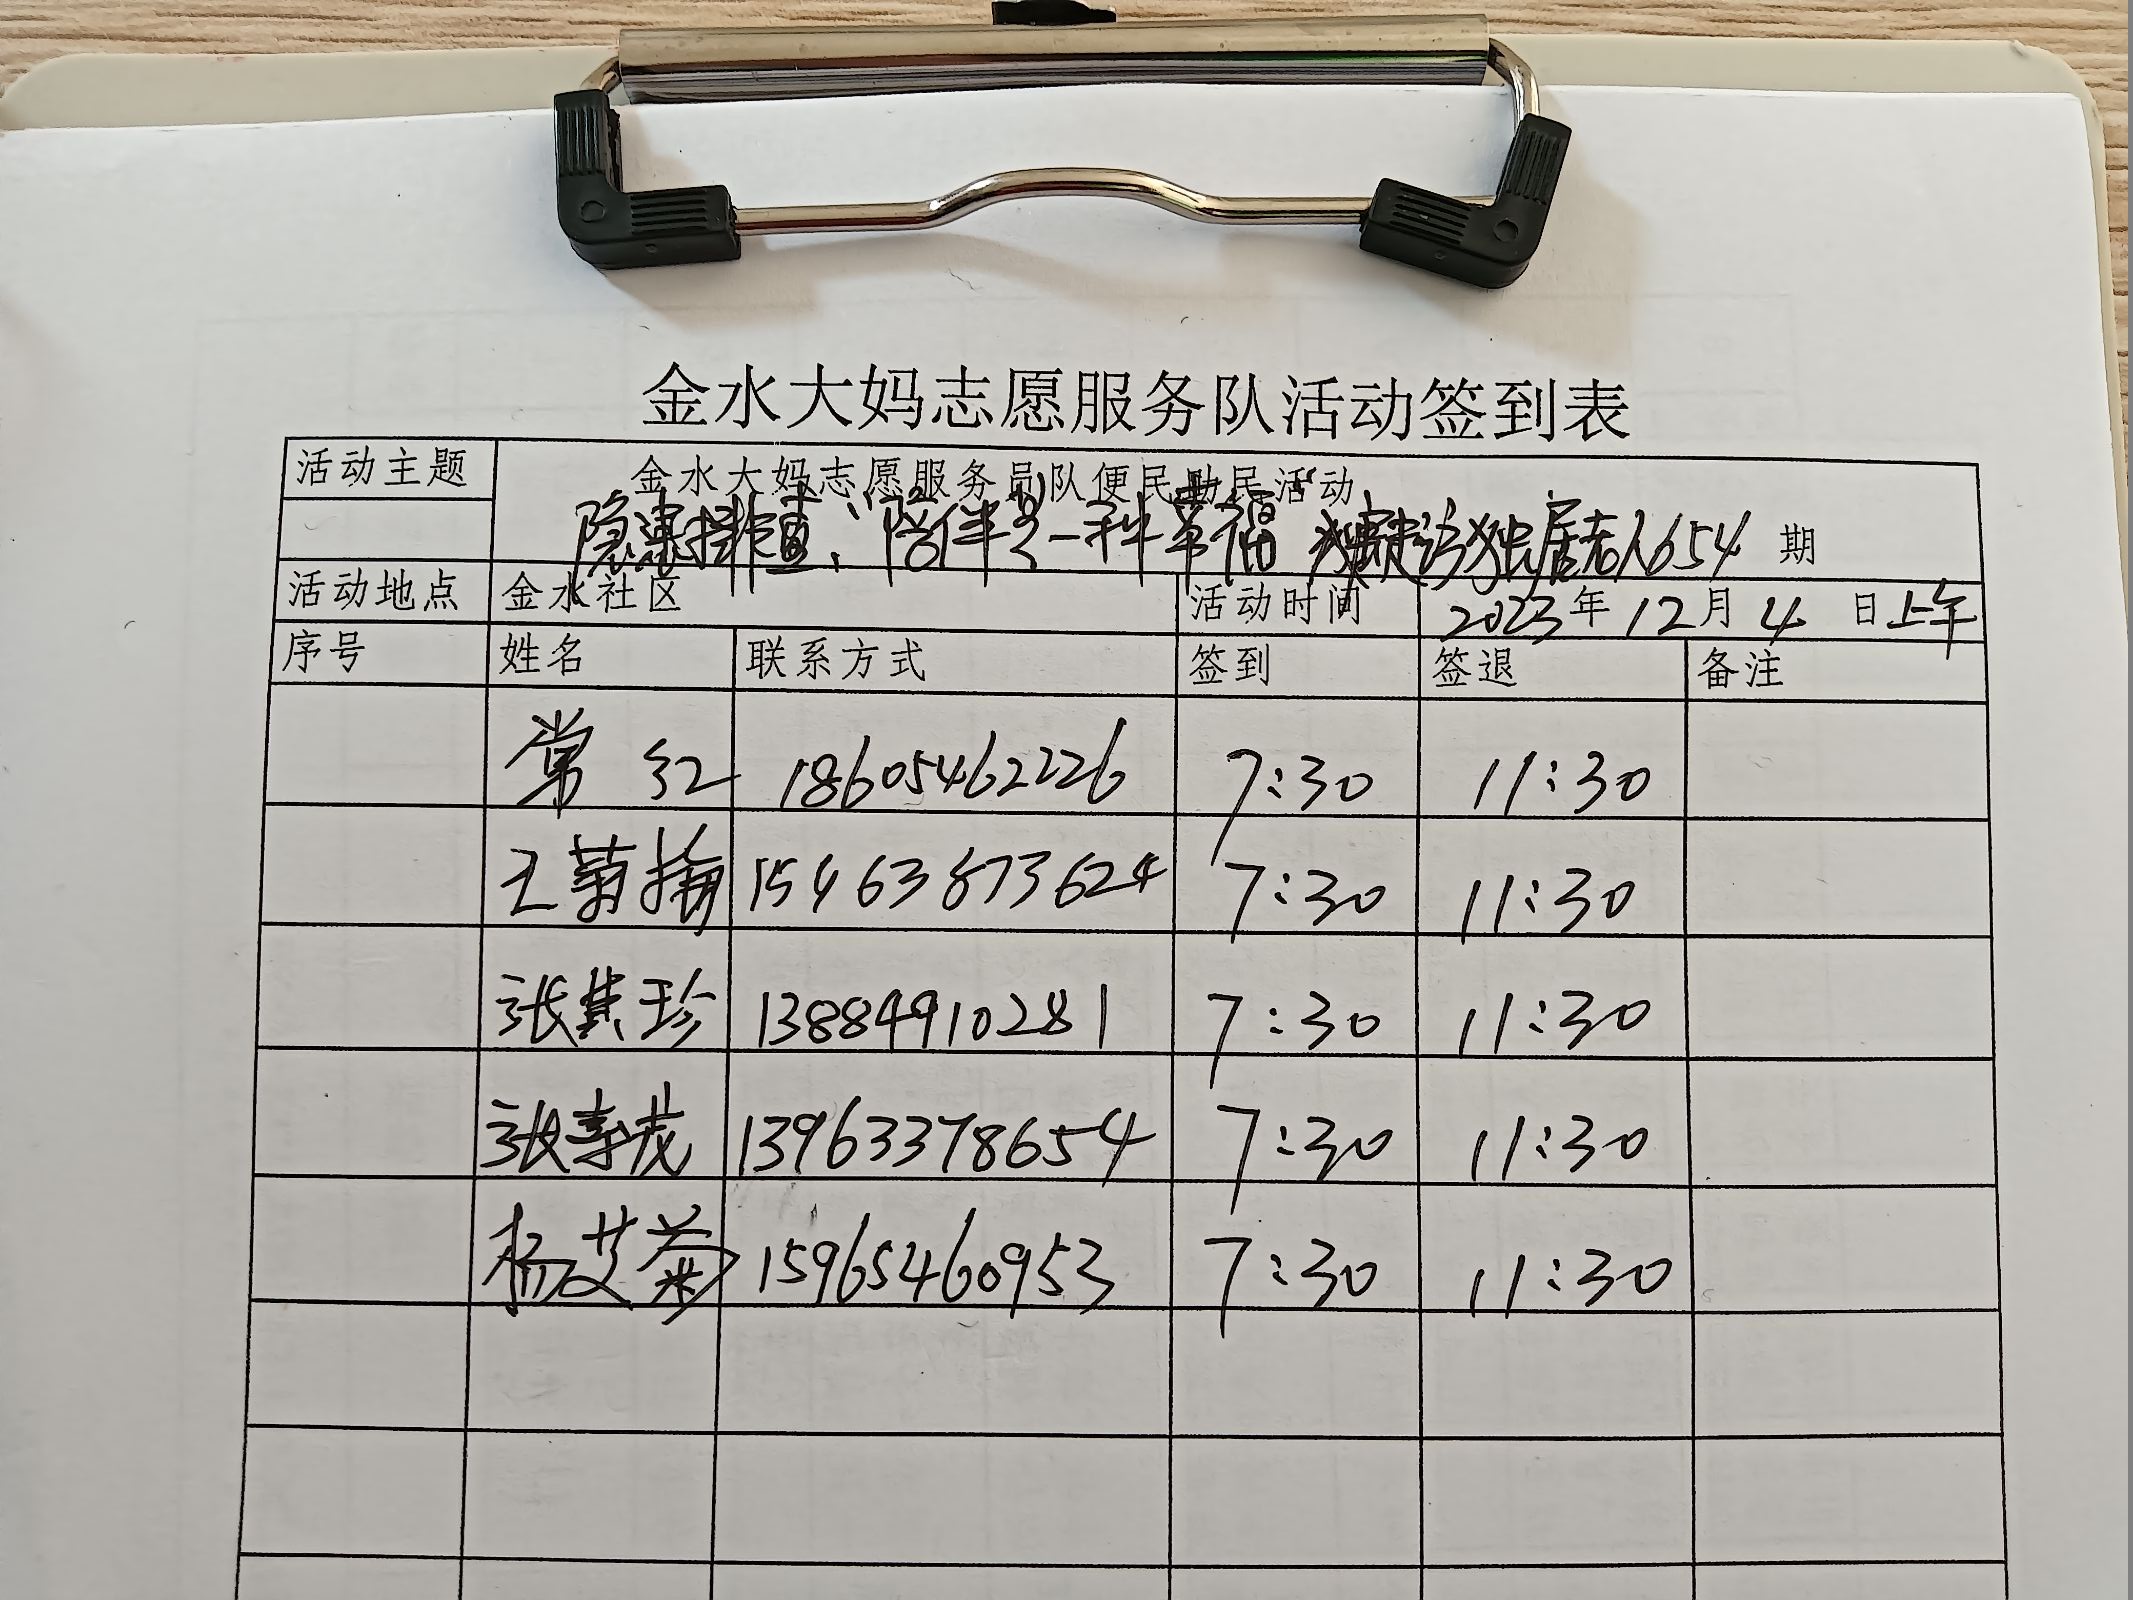 金水大妈志愿服务队活动签到表
活动主题 金水大妈志愿服务员队便民助民活动
隐患排查、"陪伴是一种幸福" 走访独居老人654 期
活动地点 金水社区 活动时间 2023年12月4日上午
序号 姓名 联系方式 签到 签退 备注
常红 18605462226 7:30 11:30
王菊梅 15463873624 7:30 11:30
张其珍 13884910281 7:30 11:30
张寿茂 13963378654 7:30 11:30
杨艾菊 15965460953 7:30 11:30